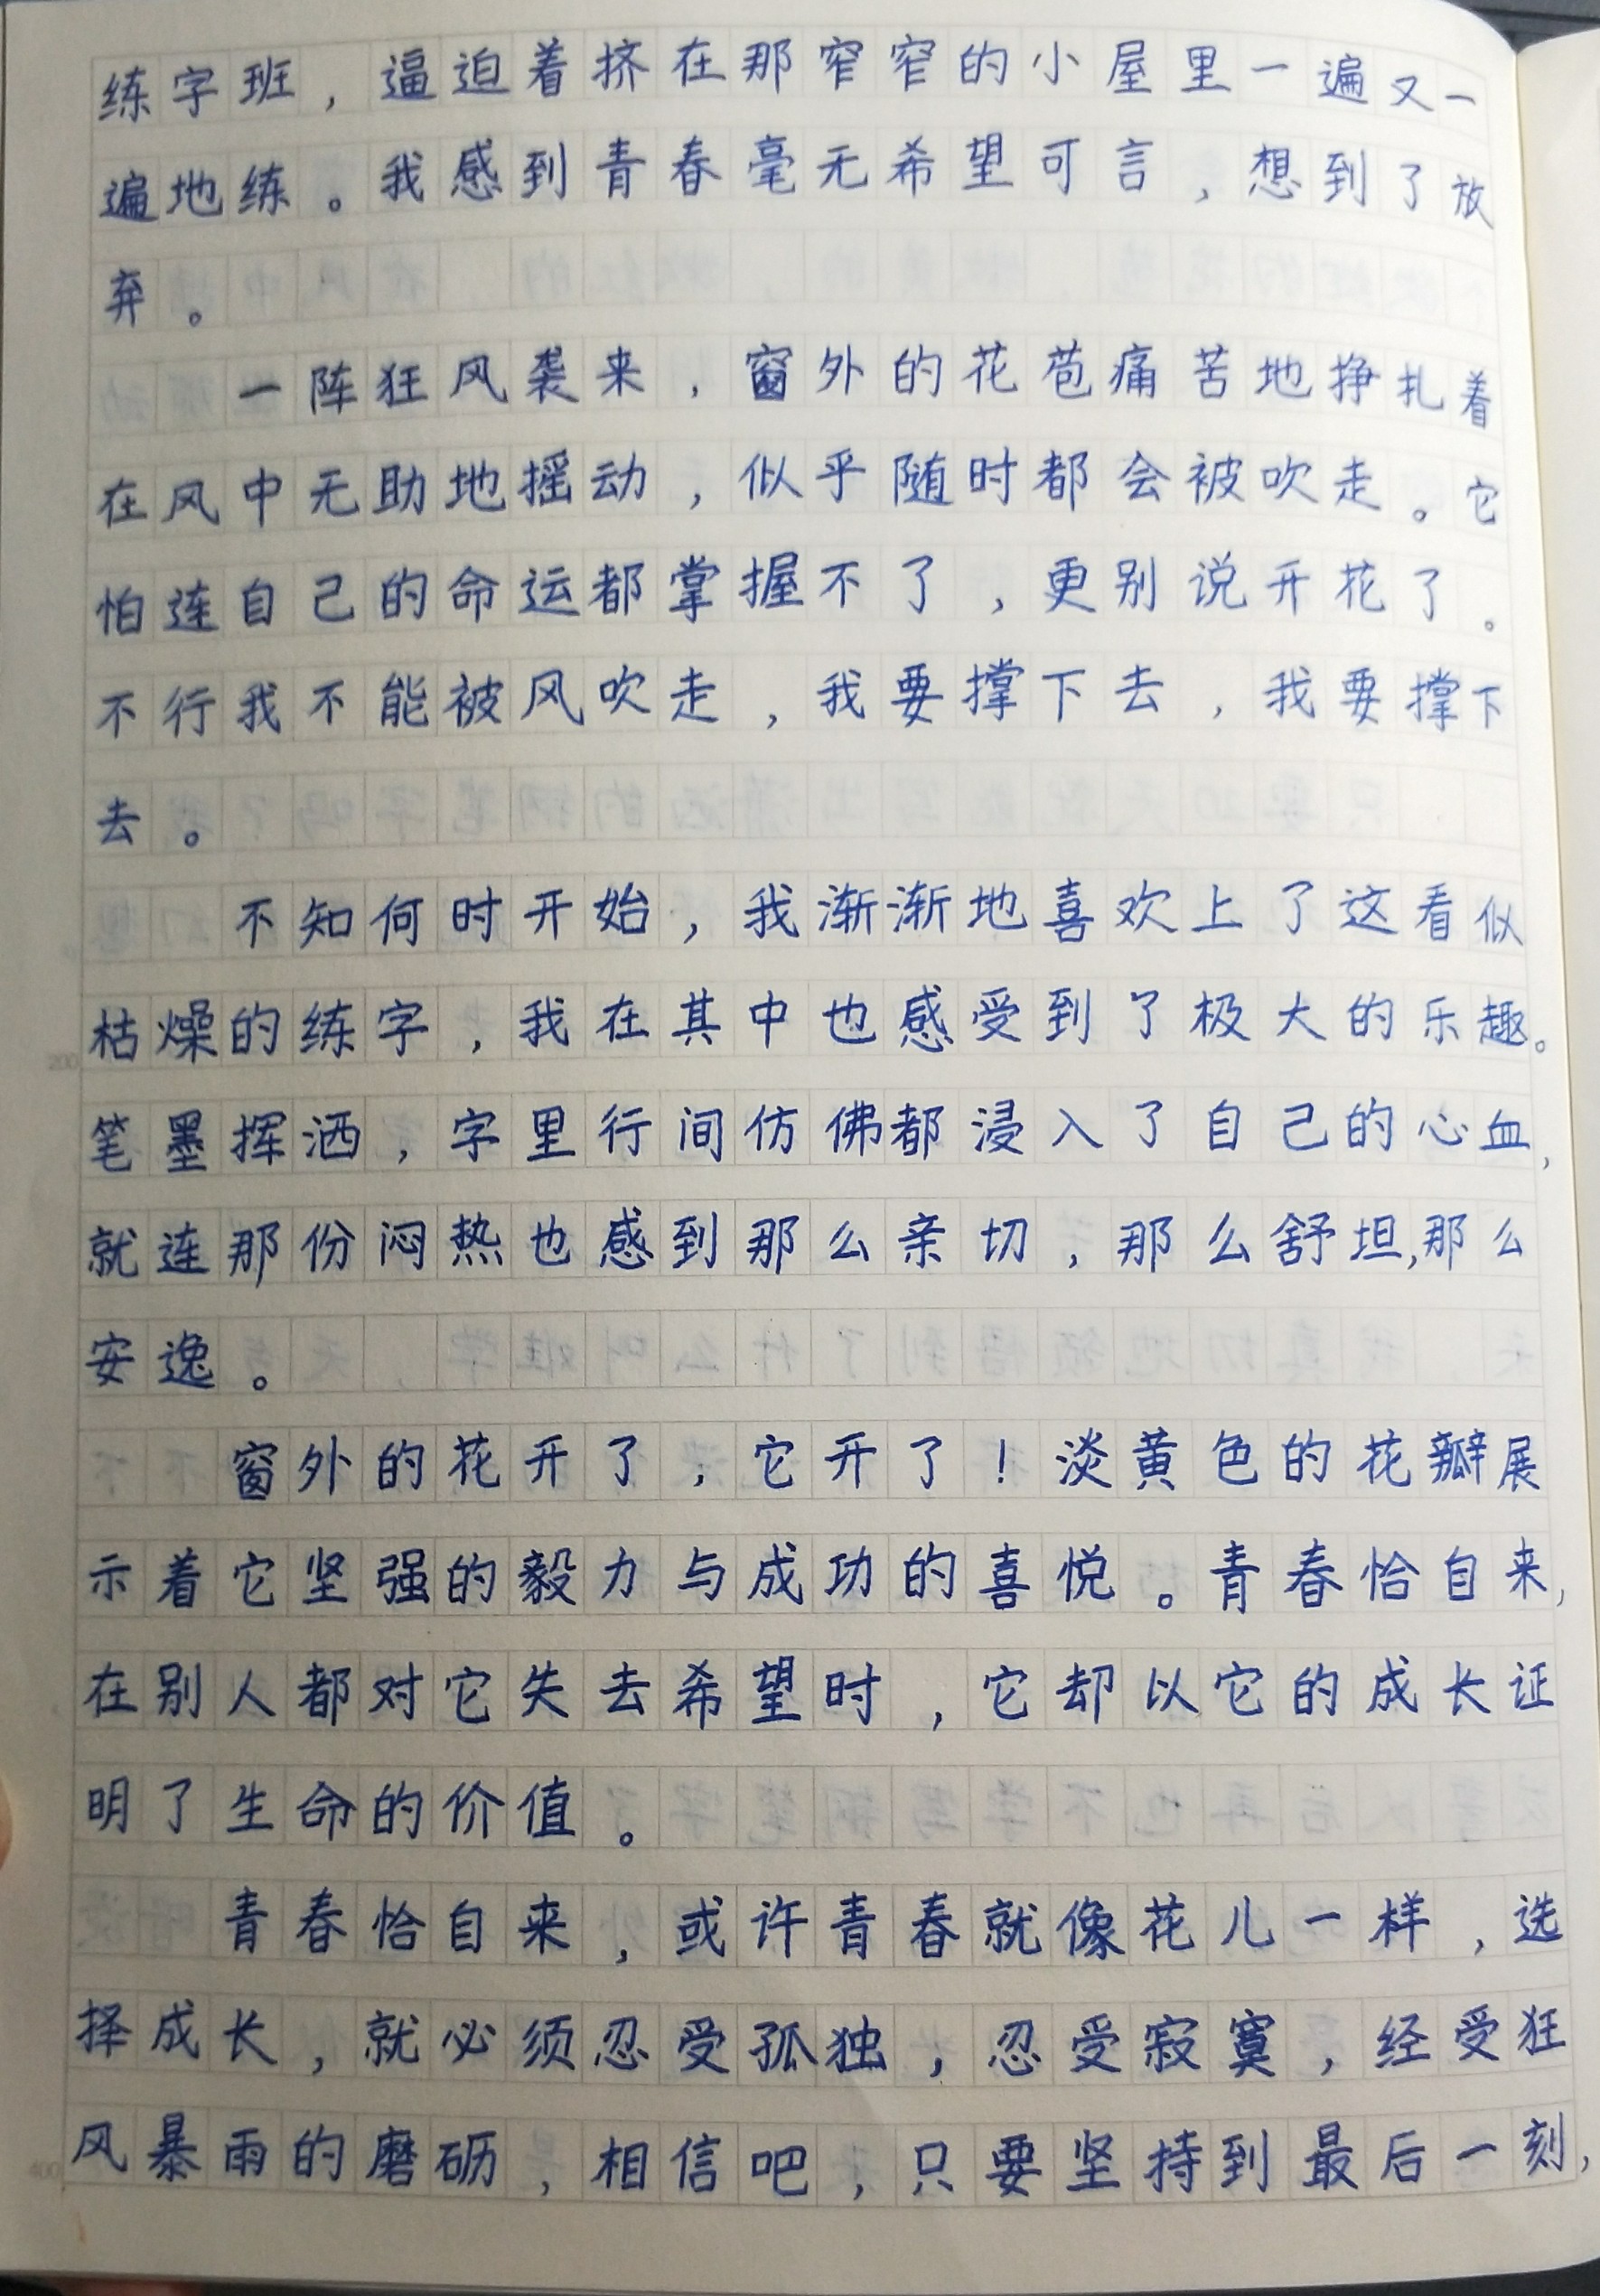 练字班，逼迫着挤在那窄窄的小屋里一遍又一
遍地练。我感到青春毫无希望可言，想到了放
弃。
一阵狂风袭来，窗外的花苞痛苦地挣扎着
在风中无助地摇动，似乎随时都会被吹走。它
怕连自己的命运都掌握不了，更别说开花了。
不行我不能被风吹走，我要撑下去，我要撑下
去。
不知何时开始，我渐渐地喜欢上了这看似
枯燥的练字，我在其中也感受到了极大的乐趣。
笔墨挥洒，字里行间仿佛都浸入了自己的心血，
就连那份闷热也感到那么亲切，那么舒坦，那么
安逸。
窗外的花开了，它开了！淡黄色的花瓣展
示着它坚强的毅力与成功的喜悦。青春恰自来，
在别人都对它失去希望时，它却以它的成长证
明了生命的价值。
青春恰自来，或许青春就像花儿一样，选
择成长，就必须忍受孤独，忍受寂寞，经受狂
风暴雨的磨砺，相信吧，只要坚持到最后一刻，
200
400